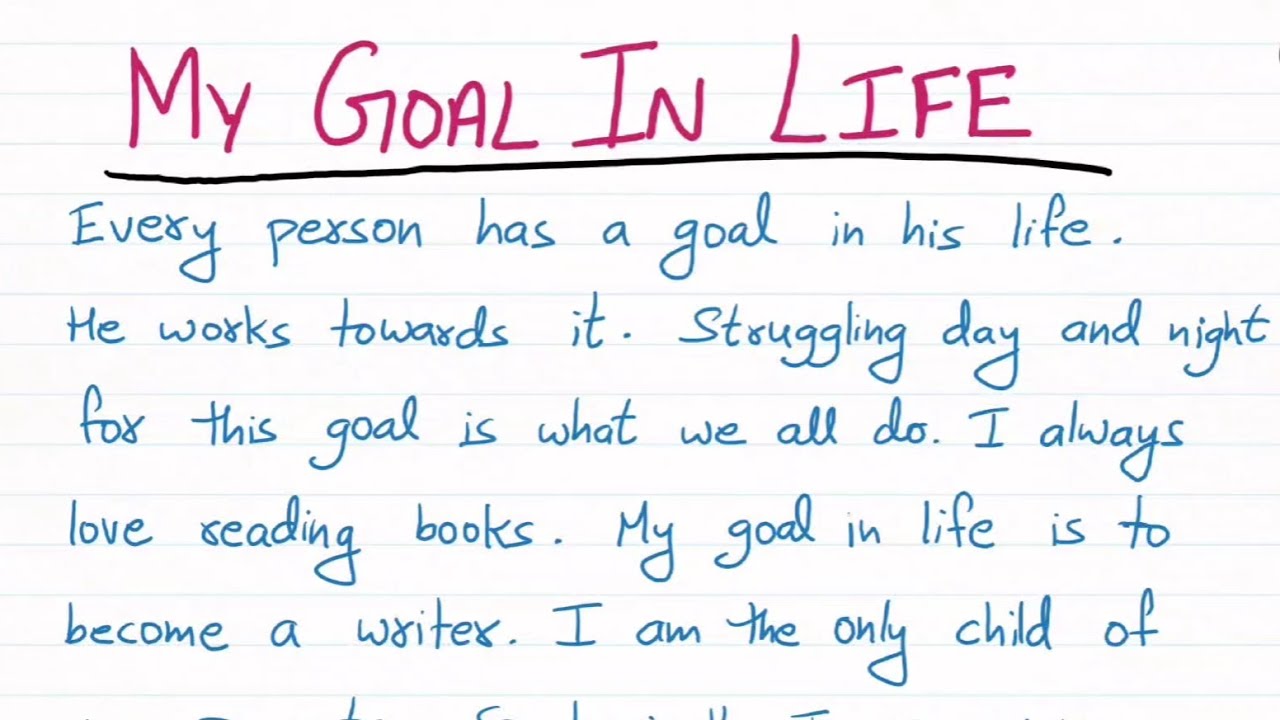 MY GOAL IN LIFE
Every person has a goal in his life.
He works towards it. Struggling day and night
for this goal is what we all do. I always
love reading books. My goal in life is to
become a writer. I am the only child of